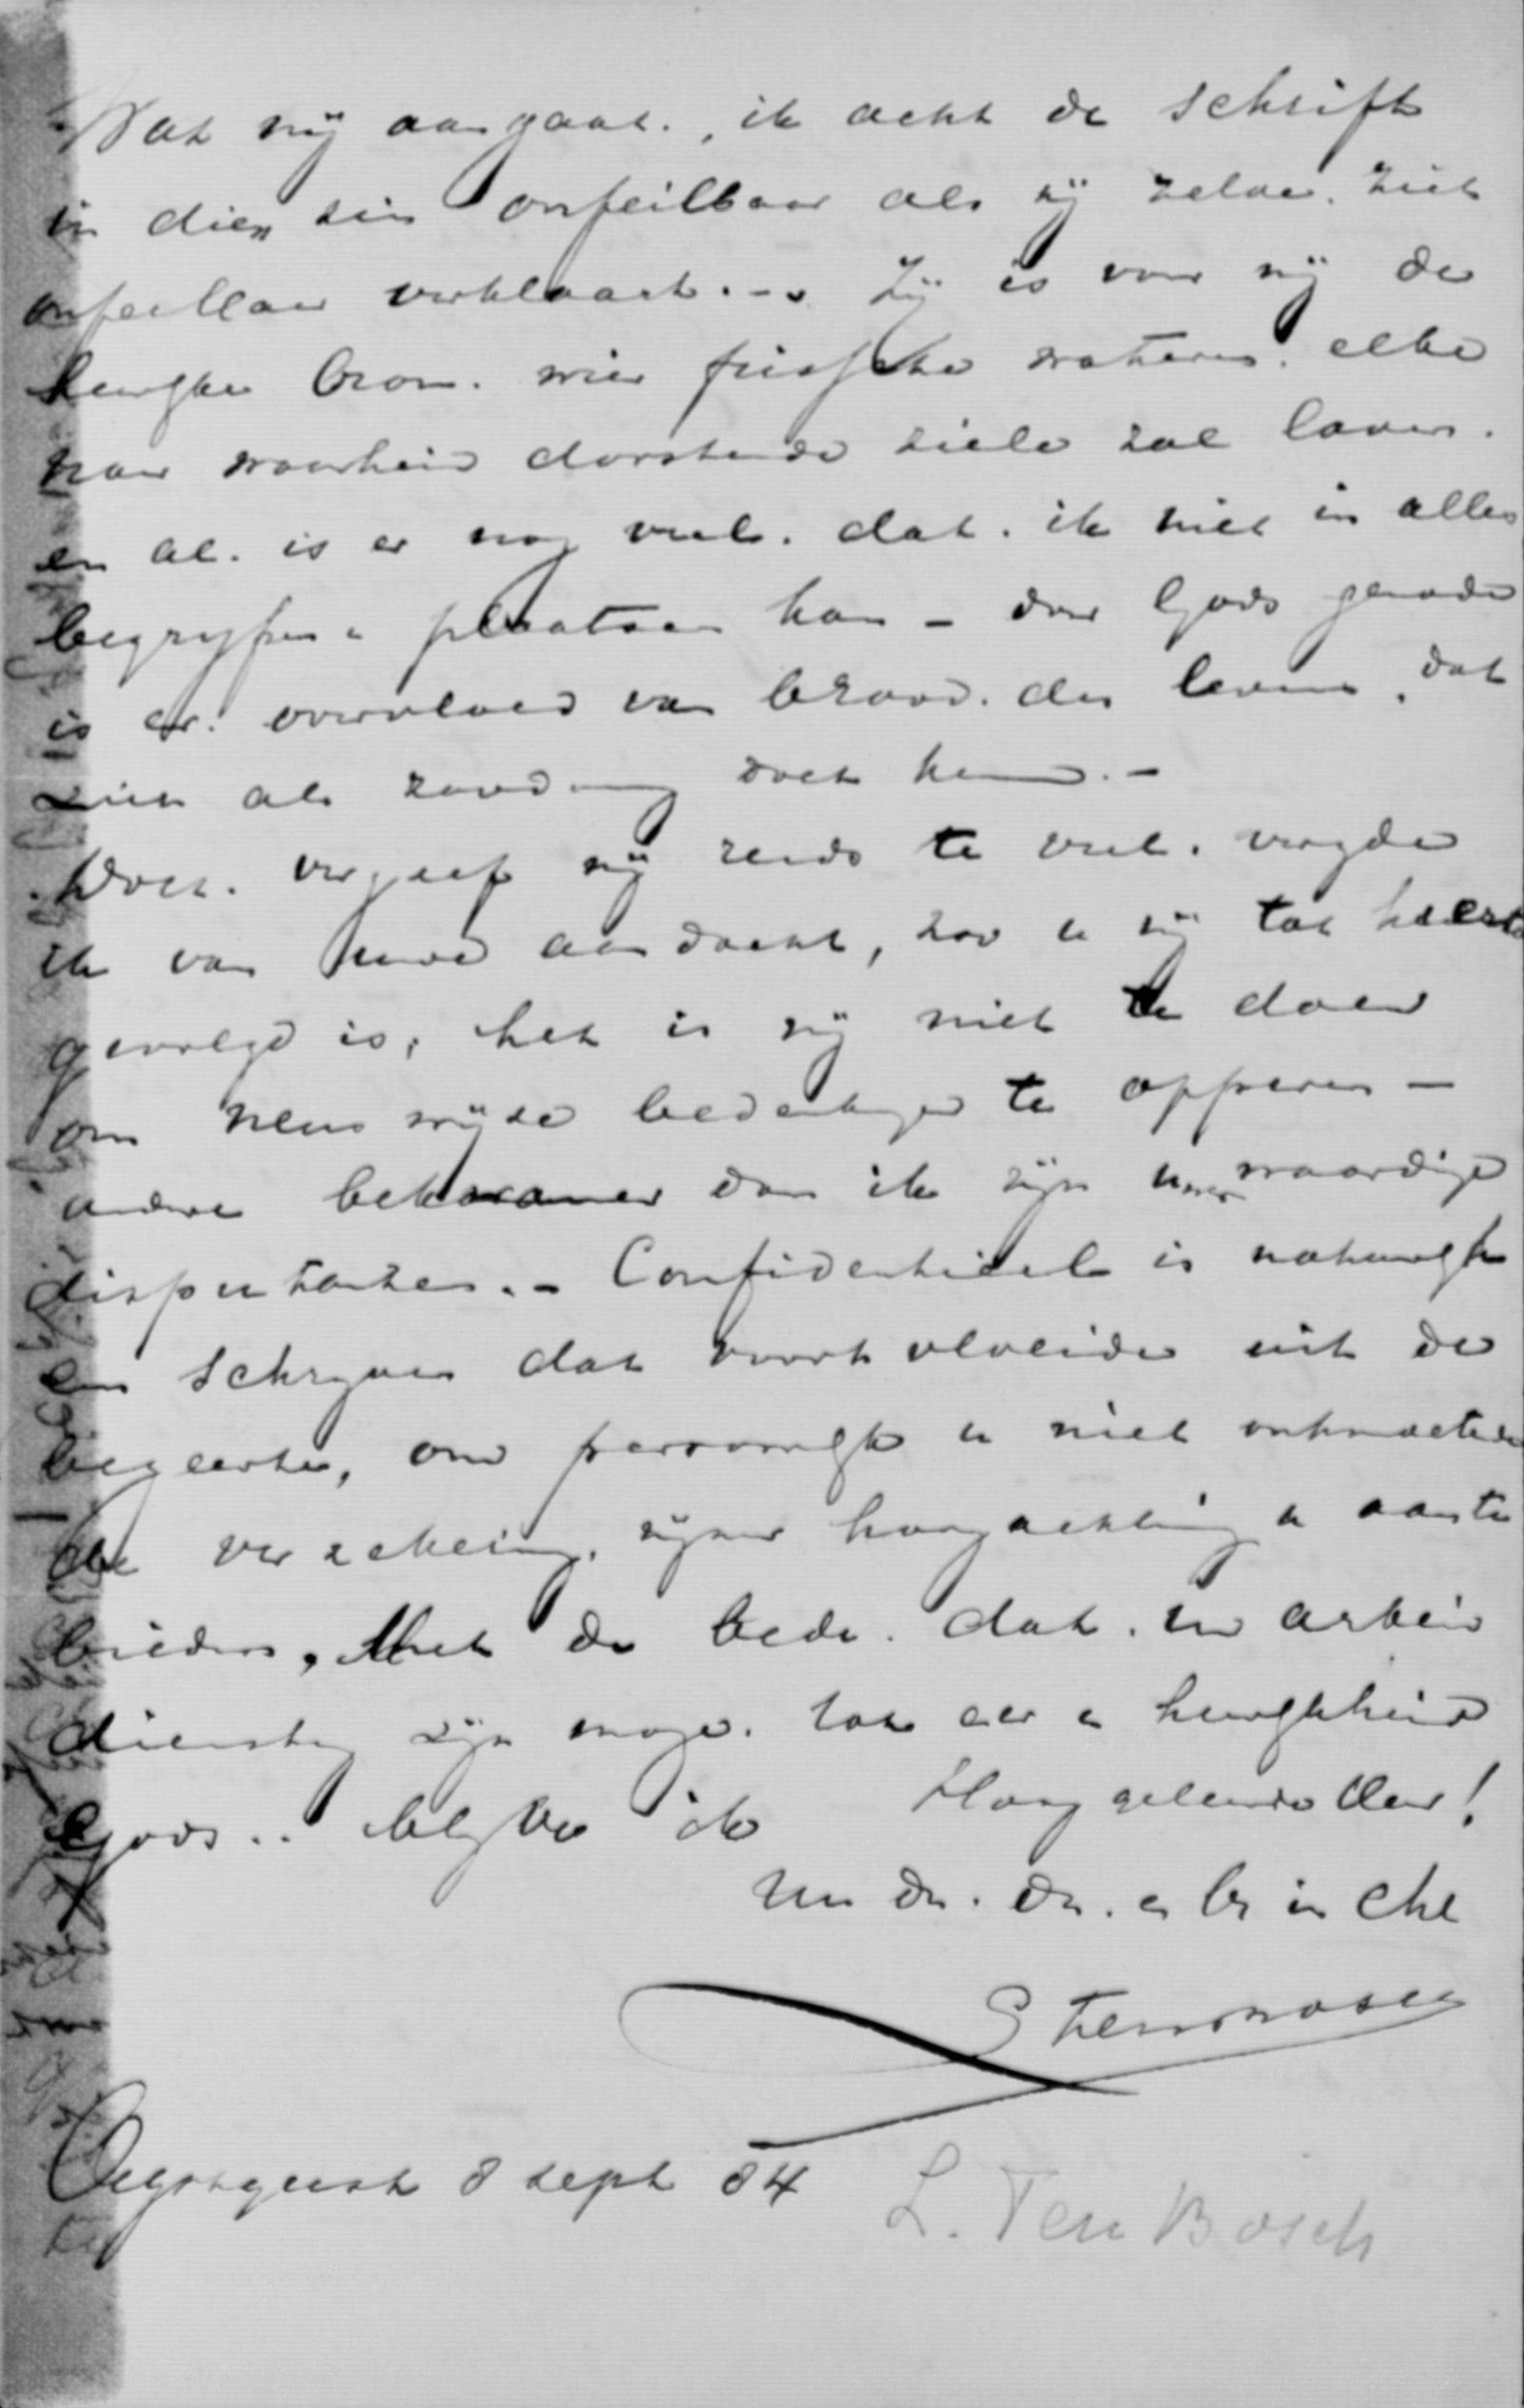 Wat mij aangaat, ik acht de Schrift
in dien zin onfeilbaar als zij zelve zich
onfeilbaar verklaart. - Zij is voor mij de
heerlijke bron, wier frissche wateren elke
naar waarheid dorstende ziele zal laven.
en al is er nog veel, dat ik niet in alles
begrijpen & plaatsen kan - door Gods genade
is er overvloed van brood des levens, dat
zich als zoodanig doet kennen. -
Doch vergeef mij reeds te veel vergde
ik van Uwe aandacht, zoo u mij tot hiertoe
gevolgd is; het is mij niet te doen
om neuswijze bedenkingen te opperen -
andere bekwamer dan ik zijn uwer waardige
disputanten. - Confidentieel is natuurlijk
een schrijven dat voortvloeide uit de
begeerte, om persoonlijk u niet ontmoetende
de verzekering zijner hoogachting u aan te
bieden, Met de bede dat uw arbeid
dienstig zijn moge tot eer & heerlijkheid
Gods.. blijve ik Hooggeleerde Heer!
Uw Dr. Dr. & br in Chr
S Tenbosch
Oegstgeest 8 Sept 84
L. Ten Bosch